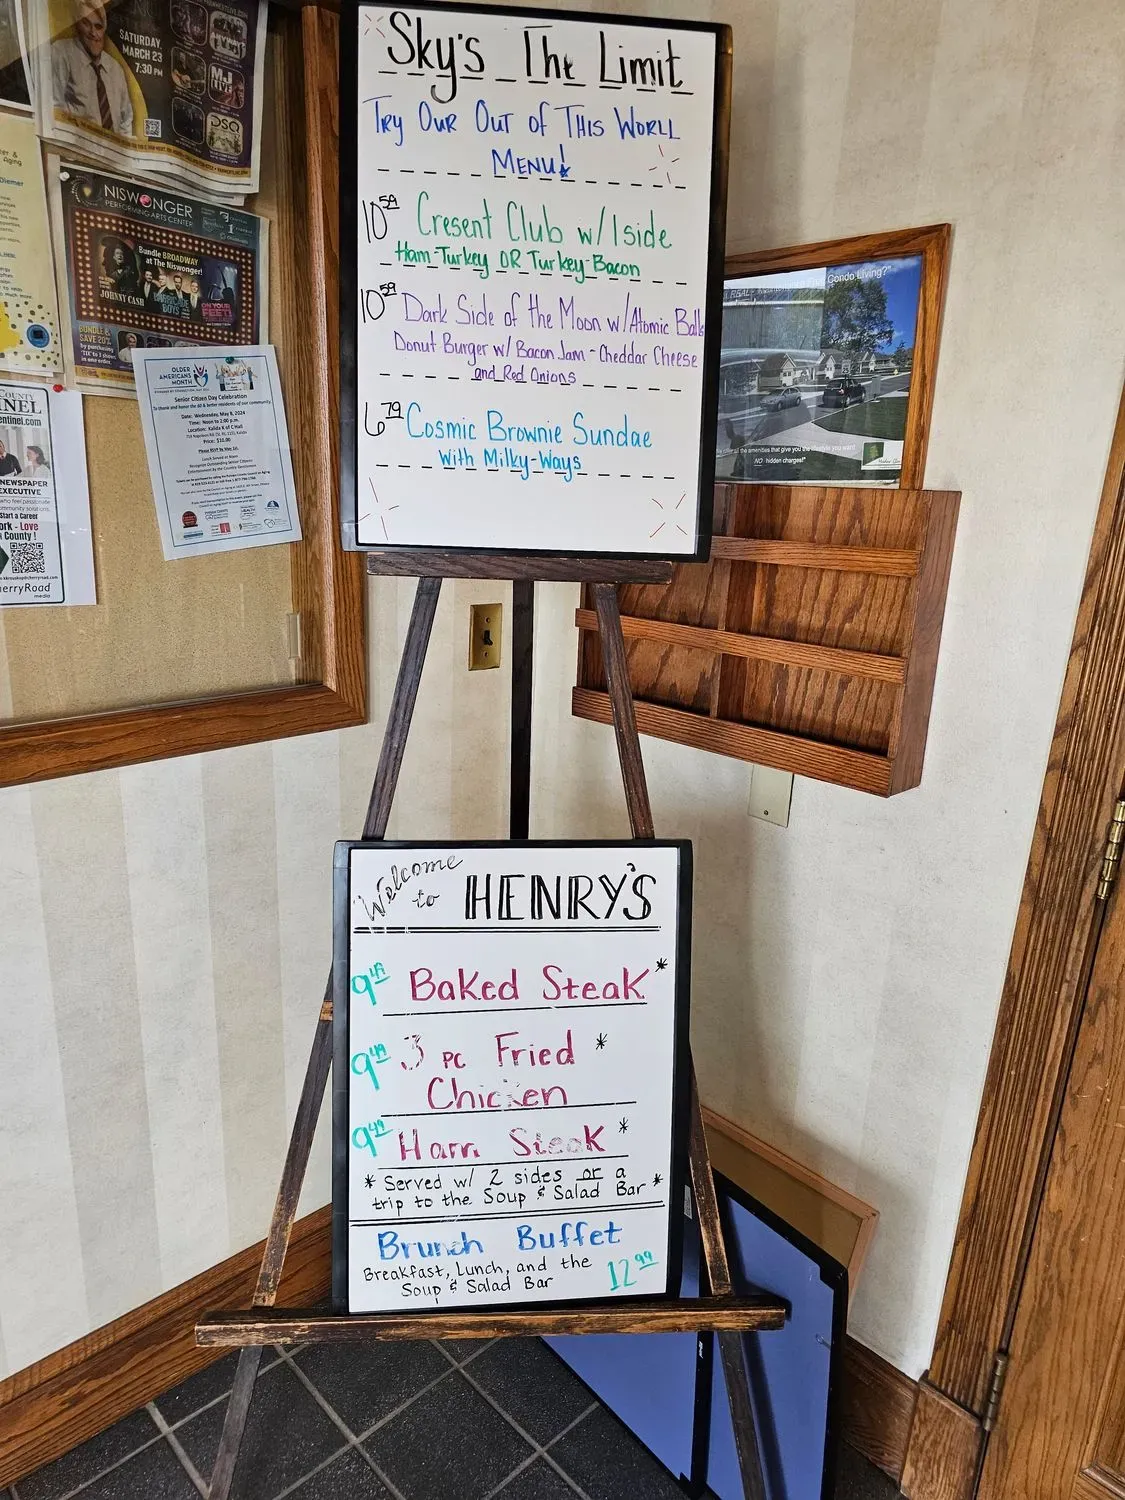 Sky's The Limit
Try Our Out of This Worll
Menu!
10⁵⁹ Cresent Club w/ 1side
Ham-Turkey OR Turkey-Bacon
10⁵⁹ Dark Side of the Moon w/Atomic Balls
Donut Burger w/ Bacon Jam - Cheddar Cheese
and Red Onions
6⁷⁹ Cosmic Brownie Sundae
with Milky-Ways
Welcome
to HENRY'S
9⁴⁹ Baked Steak*
9⁴⁹ 3 pc Fried *
Chicken
9⁴⁹ Ham Steak *
* Served w/ 2 sides or a
trip to the Soup & Salad Bar *
Brunch Buffet
Breakfast, Lunch, and the
Soup & Salad Bar 12⁹⁹
SATURDAY,
MARCH 23
7:30 PM
MJ
LIVE
DSQ
NISWONGER
PERFORMING ARTS CENTER
Bundle BROADWAY
at The Niswonger!
JOHNNY CASH
ON YOUR
FEET!
BUNDLE &
SAVE 20%
OLDER
AMERICANS
MONTH
Senior Citizen Day Celebration
To thank and honor the 60 & better residents of our community.
Date: Wednesday, May 8, 2024
Time: Noon to 2:00 p.m.
Location: Kalida K of C Hall
Price: $10.00
COUNTY
INEL
entinel.com
NEWSPAPER
EXECUTIVE
Start a Career
ork - Love
County!
herryRoad
media
Condo Living?"
NO hidden charges!"